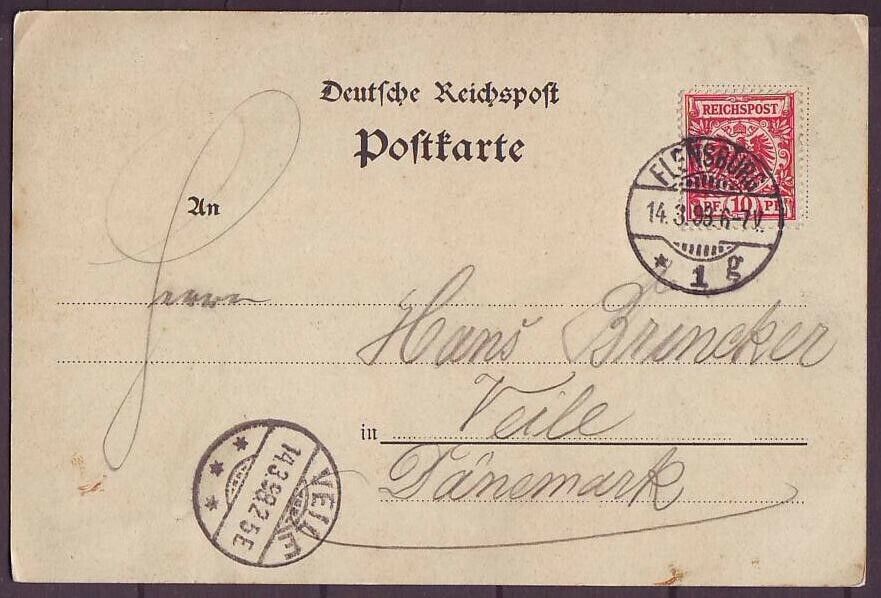 Deutsche Reichspost
Postkarte
REICHSPOST
PF. 10 PF.
FLENSBURG
14.3.98.6-7V.
* 1 g
An
Herrn
Hans Bruncker
in Veile
Dänemark
VEILE
14.3.98.2 5E